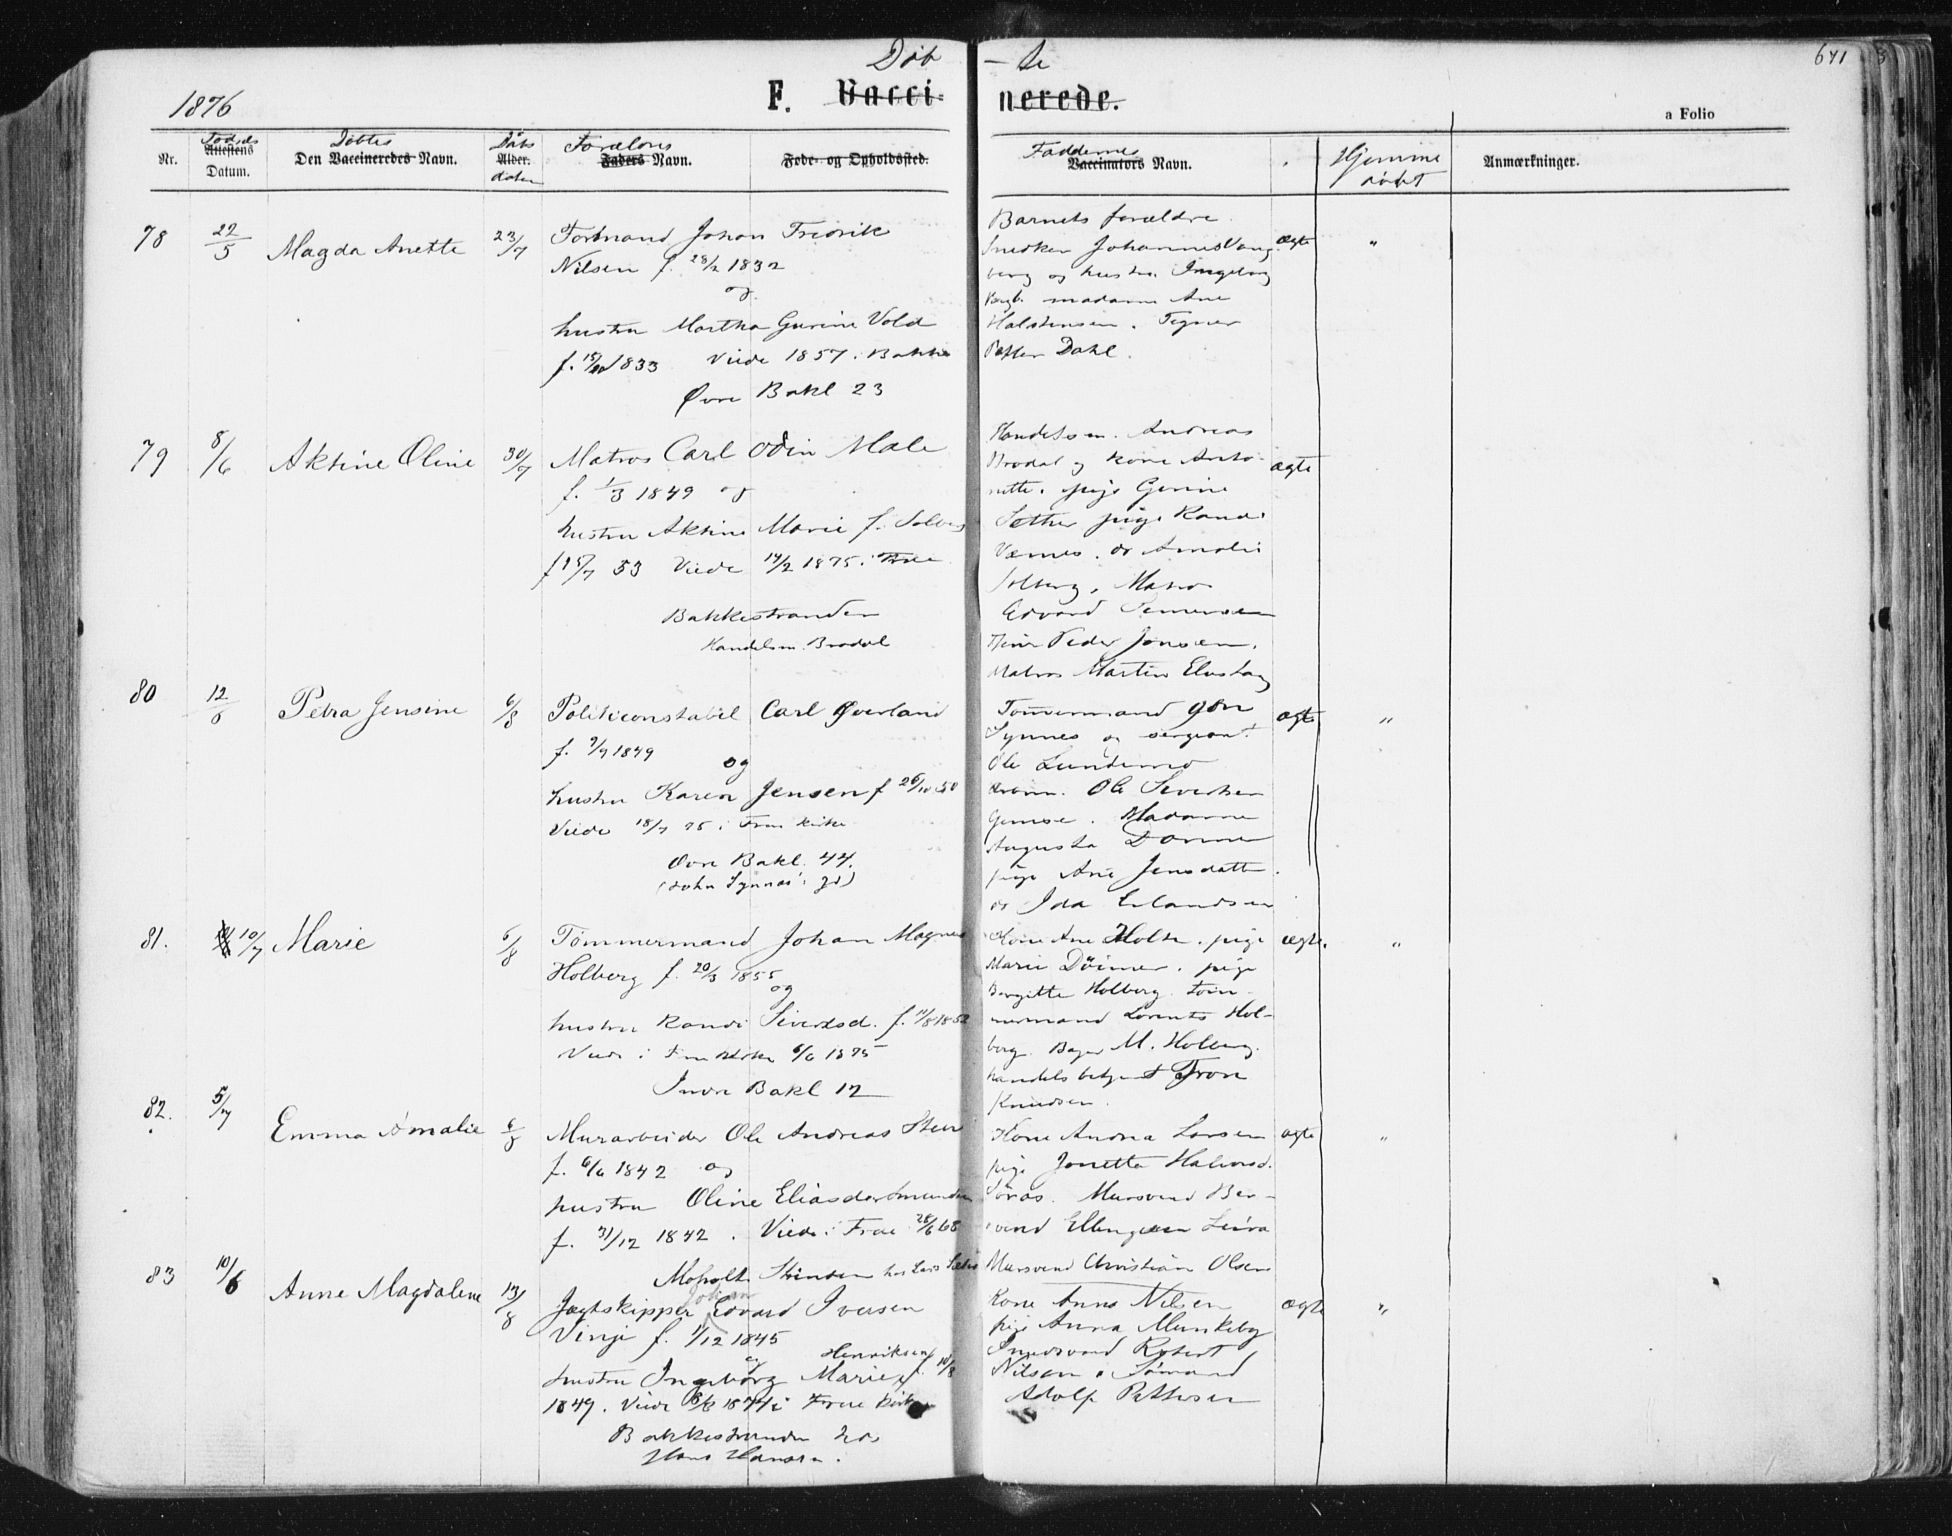 Døb - te
641
1876
F. Vacci- nerede.
a Folio
Nr.
Fødsels
Attestens
Datum.
Døbtes
Den Vaccineredes Navn.
Daabs
Alder.
datum
Forældres
Faders Navn.
Føde- og Opholdssted.
Faddernes
Vaccinators Navn.
Hjemme
døbt
Anmærkninger.
78
22/5
Magda Anette
23/7
Formand Johan Fredrik
Nilsen f. 28/2 1832
og
hustru Martha Gurine Vold
f. 1833 Viede 1857. Bakke
Øvre Bakl 23
Barnets forældre
Snedker Johannes Vang
berg og hustru Ingeborg
madame Ane
Halstensen. Tegner
Petter Dahl.
ægte
"
79
8/6
Aktine Oline
30/7
Matros Carl Odin Male
f. 1/3 1849 og
hustru Aktine Marie f. Solberg
f 15/7 53 Viede 14/2 1875 i Frue
Bakkestranden
Handelsm. Brodal
Handelsm. Andreas
Brodal og kone Anto-
nette. pige Gurine
Sæther pige Randi
Værnes. do Amalie
Solberg. Matros
Edvard
Peder Jonsen.
Matros Martin
ægte
80
12/6
Petra Jensine
6/8
Politiconstabel Carl Øverland
f. 7/9 1849
og
hustru Karen Jensen f 26/10 50
Viede 18/7 75 i Frue kirke
Øvre Bakl. 44.
(John Synnes's gd)
Tømmermand John
Synnes og sergeant
Ole Lundemo
Ole Sivertsen
Madame
Augusta
pige Ane Jensdatter.
do Ida Erlandsen
ægte
"
81.
10/7
Marie
6/8
Tømmermand Johan Magnus
Holberg f. 20/3 1855
og
hustru Randi Sivertsd. f. 11/8 1852
Viede i Frue kirke 6/6 1875
Indre Bakl 12
Kone Ane Holte. pige
Marie pige
Bergitte Holberg. Töm-
mermand Lorents Hol-
berg. Bager M. Holberg.
Handelsbetjent Tron
Knudsen.
ægte.
"
82.
5/7
Emma Amalie
6/8
Murarbeider Ole Andreas
f. 6/6 1842 og
hustru Oline Eliasdatter
f. 31/12 1842. Viede i Frue 28/6 68
hos Lars
Kone Andrea Larsen
pige Jonetta Halvorsd.
Mursvend Ber-
Ellingsen
Mursvend Christian Olsen
ægte
"
83
10/6
Anne Magdalene
13/8
Johan
Jægtskipper Edvard Iversen
Vinje f. 1/12 1845
og Henriksen
hustru Ingeborg Marie f. 10/8
1849. Viede i Frue kirke
Bakkestranden hos
Hans Hansen.
Kone Anna Nilsen
pige Anna Munkeby
Robert
Nilsen. Sømand
Adolf Pettersen
ægte
"